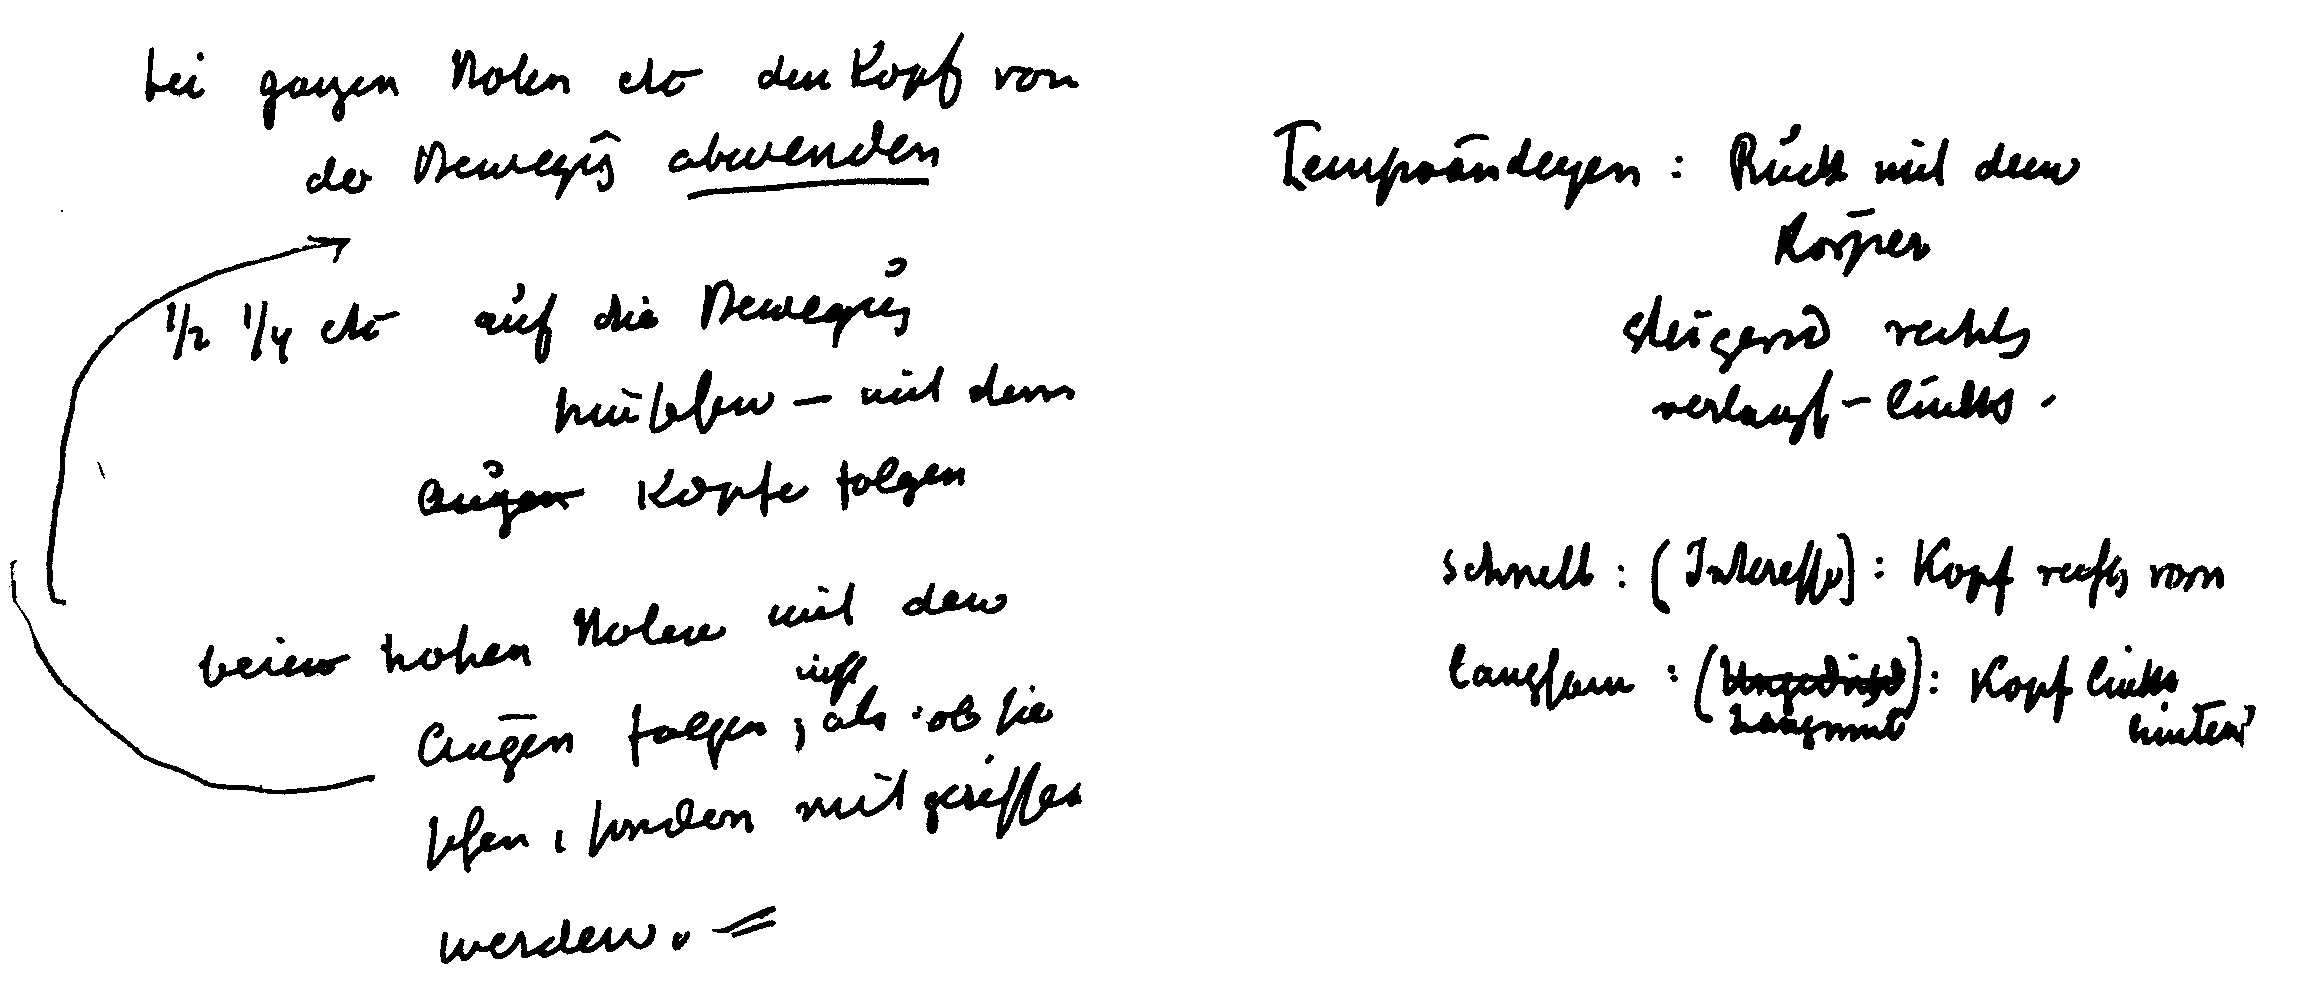 bei ganzen Noten etc den Kopf von
der Bewegūg abwenden
1/2 1/4 etc auf die Bewegūg
hinsehen – mit dem
Augen Kopfe folgen
beim hohen Noten mit den
Augen folgen, nicht als ob sie
sehen, sondern mitgerissen
werden. =
Tempoändergen : Rück mit dem
Körper
steigend rechts
verlauf – links .
schnell : (Interesse) : Kopf rechts vorn
langsam : (Ungeduld Langmut) : Kopf links
hinten